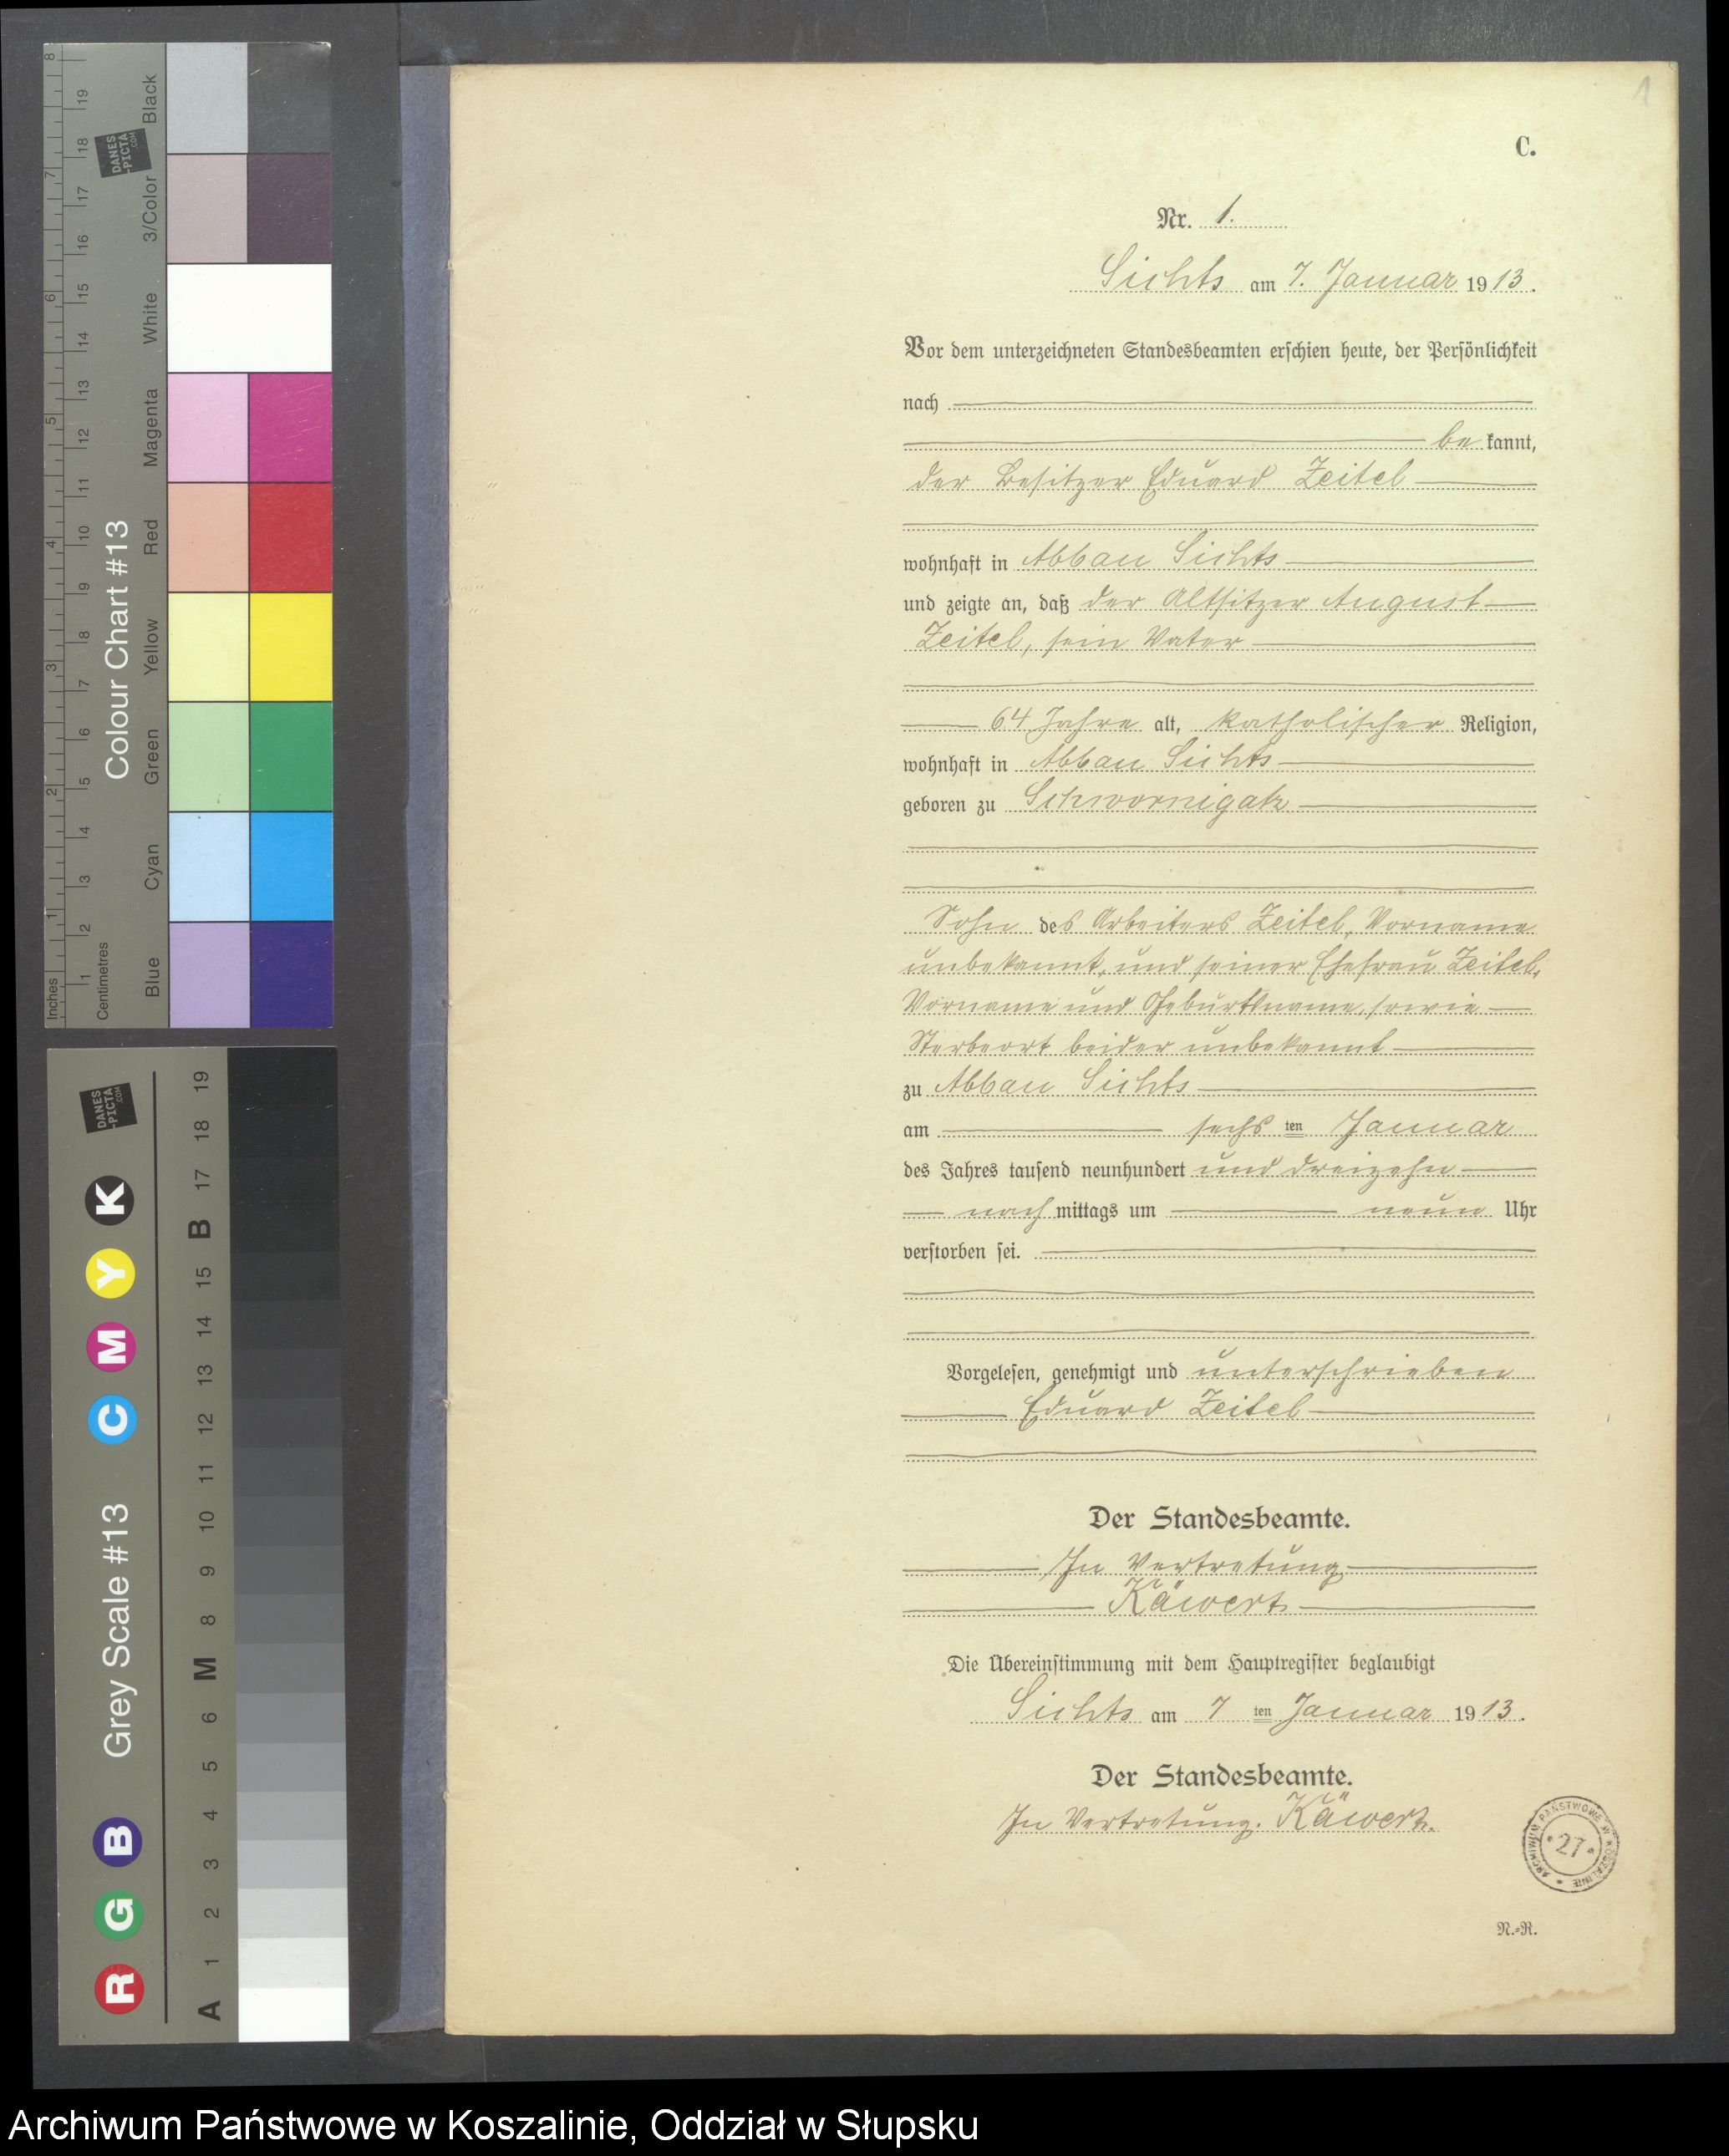 1
C.
Nr. 1.
Sichts am 7. Januar 1913.
Vor dem unterzeichneten Standesbeamten erschien heute, der Persönlichkeit
nach
be kannt,
der Besitzer Eduard Zeitel
wohnhaft in Abbau Sichts
und zeigte an, daß der Altsitzer August
Zeitel, sein Vater
64 Jahre alt, katholischer Religion,
wohnhaft in Abbau Sichts
geboren zu Schwornigatz
Sohn des Arbeiters Zeitel, Vorname
unbekannt, und seiner Ehefrau Zeitel,
Vorname und Geburtsname, sowie
Sterbeort beider unbekannt
zu Abbau Sichts
am sechs ten Januar
des Jahres tausend neunhundert und dreizehn
nach mittags um neun Uhr
verstorben sei.
Vorgelesen, genehmigt und unterschrieben
Eduard Zeitel
Der Standesbeamte.
In Vertretung
Käwert
Die Übereinstimmung mit dem Hauptregister beglaubigt
Sichts am 7 ten Januar 1913.
Der Standesbeamte.
In Vertretung. Käwert.
ARCHIWUM PAŃSTWOWE W KOSZALINIE
27
N.-R.
Colour Chart #13
Blue Cyan Green Yellow Red Magenta White 3/Color Black
Inches 1 2 3 4 5 6 7 8
Centimetres 1 2 3 4 5 6 7 8 9 10 11 12 13 14 15 16 17 18 19
DANES
-PICTA
.COM
Grey Scale #13
R G B C M Y K
A 1 2 3 4 5 6 M 8 9 10 11 12 13 14 15 B 17 18 19
DANES
-PICTA
.COM
Archiwum Państwowe w Koszalinie, Oddział w Słupsku